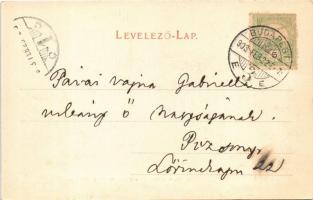 LEVELEZŐ-LAP.
BUDAPEST
Pávai vajna Gabriella
urleány ő nagyságának.
Pozsony
Lőrinckapu 22